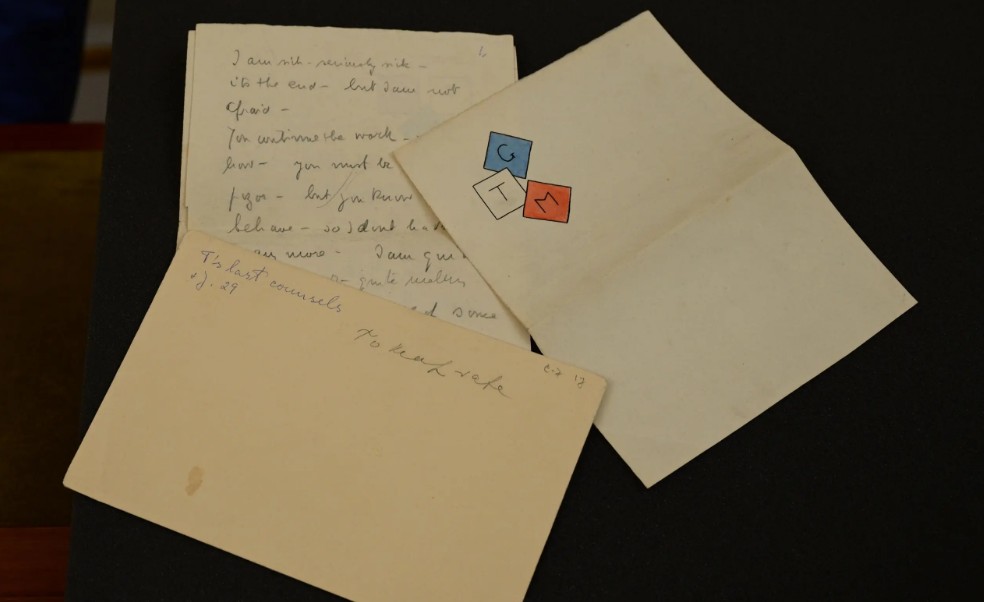 I am sick - seriously sick -
it's the end - but I am not
afraid -
You continue the work -
how - you must be
but you know
behave - so I dont ha
any more - I am qui
quite
some
G
T
M
T's last counsels
29
To keep safe